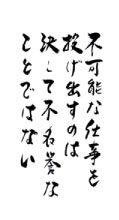 不可能な仕事を
投げ出すのは
決して不名誉な
ことではない